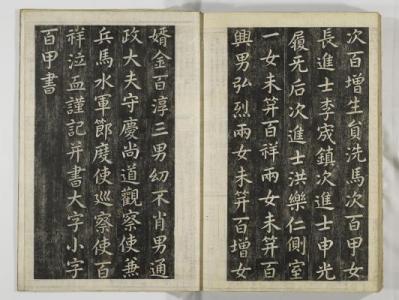 次百增生員洗馬次百甲女
長進士李宬鎮次進士申光
履旡后次進士洪樂仁側室
一女未笄百祥兩女未笄百
興男弘烈兩女未笄百增女
婿金百淳三男幼不肖男通
政大夫守慶尚道觀察使兼
兵馬水軍節度使巡察使百
祥泣血謹記并書大字小字
百甲書